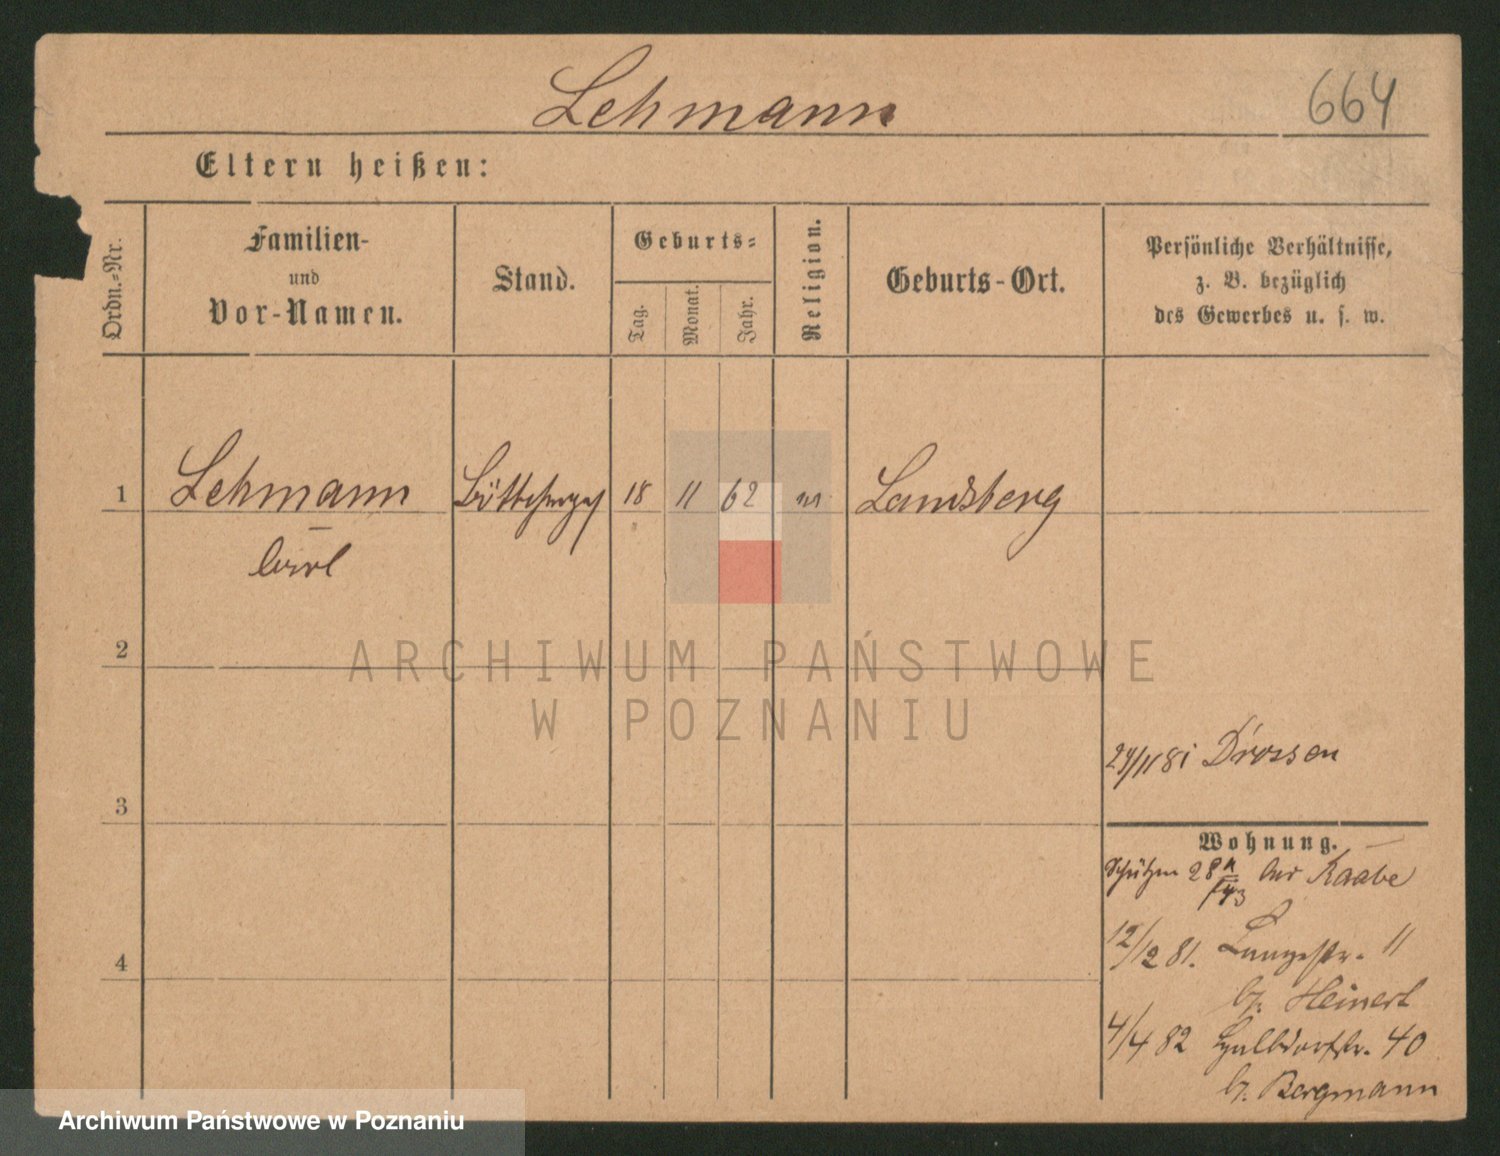 Lehmann 664
Eltern heißen:
Ordn.-Nr.
Familien-
und
Vor-Namen.
Stand.
Geburts-
Tag.
Monat.
Jahr.
Religion.
Geburts-Ort.
Persönliche Verhältnisse,
z. B. bezüglich
des Gewerbes u. s. w.
1 Lehmann 18 11 62 Landsberg
Carl
2
ARCHIWUM PAŃSTWOWE
W POZNANIU
24/11 81 Drossen
3
Wohnung.
Schützen 28 bei Raabe
4
12/12 81. Langestr. 11
b. Heinert
4/4 82 Halbdorfstr. 40
b. Bergmann
Archiwum Państwowe w Poznaniu